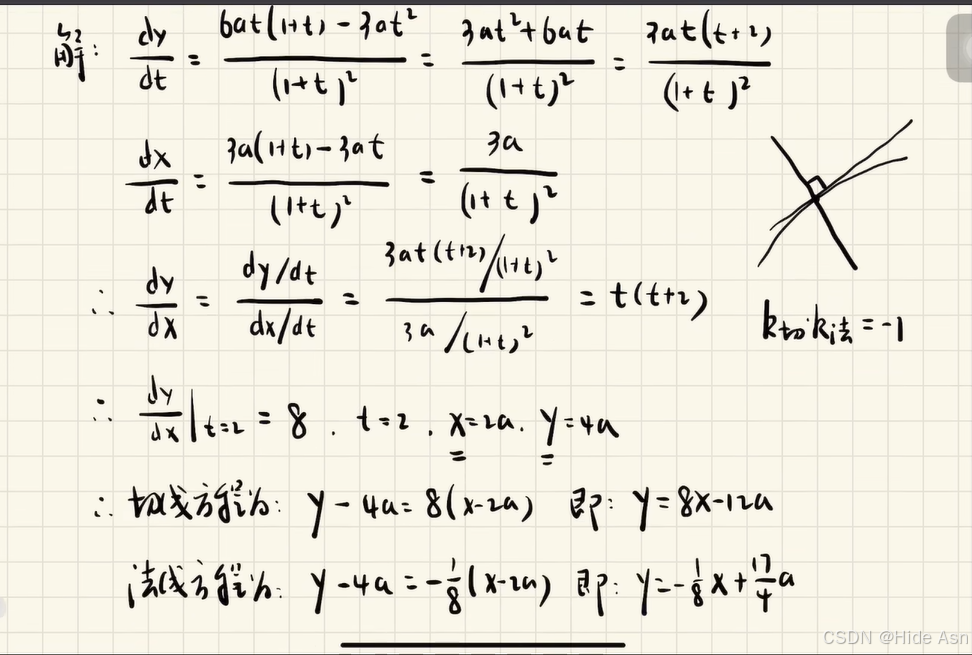 解: dy/dt = (6at(1+t) - 3at²)/(1+t)² = (3at²+6at)/(1+t)² = 3at(t+2)/(1+t)²
dx/dt = (3a(1+t) - 3at)/(1+t)² = 3a/(1+t)²
∴ dy/dx = (dy/dt)/(dx/dt) = (3at(t+2)/(1+t)²)/(3a/(1+t)²) = t(t+2)
k切·k法=-1
∴ dy/dx|t=2 = 8. t=2. x=2a. y=4a
∴ 切线方程为: y-4a=8(x-2a) 即: y=8x-12a
法线方程为: y-4a=-1/8(x-2a) 即: y=-1/8x+17/4a
CSDN @Hide Asn